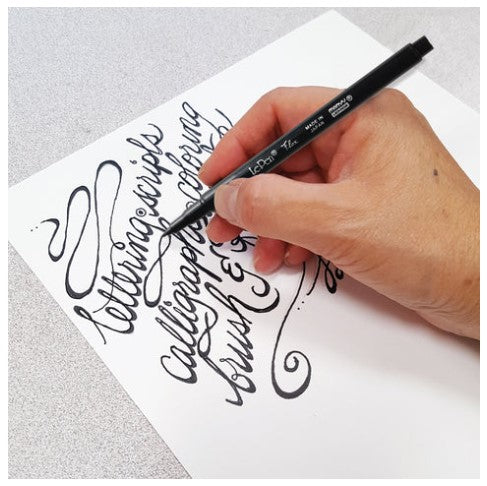 lettering scripts
calligraphy coloring
brush &
LePen® flex
MADE IN
JAPAN
marvy